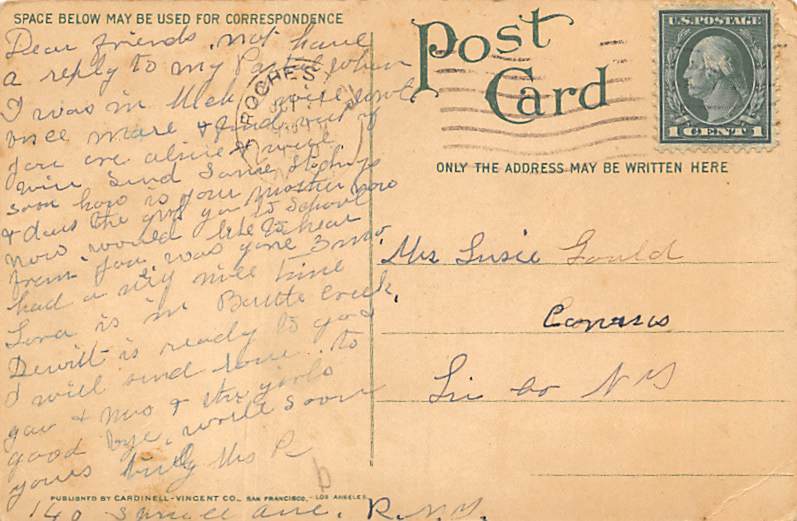 SPACE BELOW MAY BE USED FOR CORRESPONDENCE
Dear friends, not have
a reply to my Postal when
I was in Mich, will
once more & find out if
you are alive &
will send some
soon how is your mother now
& dous the girls go to School
now would like to hear
from you was gone 3 mo,
had a very nice time
Lora is in Battle Creek,
Dewitt is ready to go
I will send love to
you & & the girls
good bye, write soon
yours truly Mrs R
140 Spruce ave, R. N.Y.
Post
Card
ROCHES
U.S. POSTAGE
1 CENT 1
ONLY THE ADDRESS MAY BE WRITTEN HERE
Mrs Susie Gould
Conesus
Liv Co N Y
PUBLISHED BY CARDINELL-VINCENT CO., SAN FRANCISCO, - LOS ANGELES